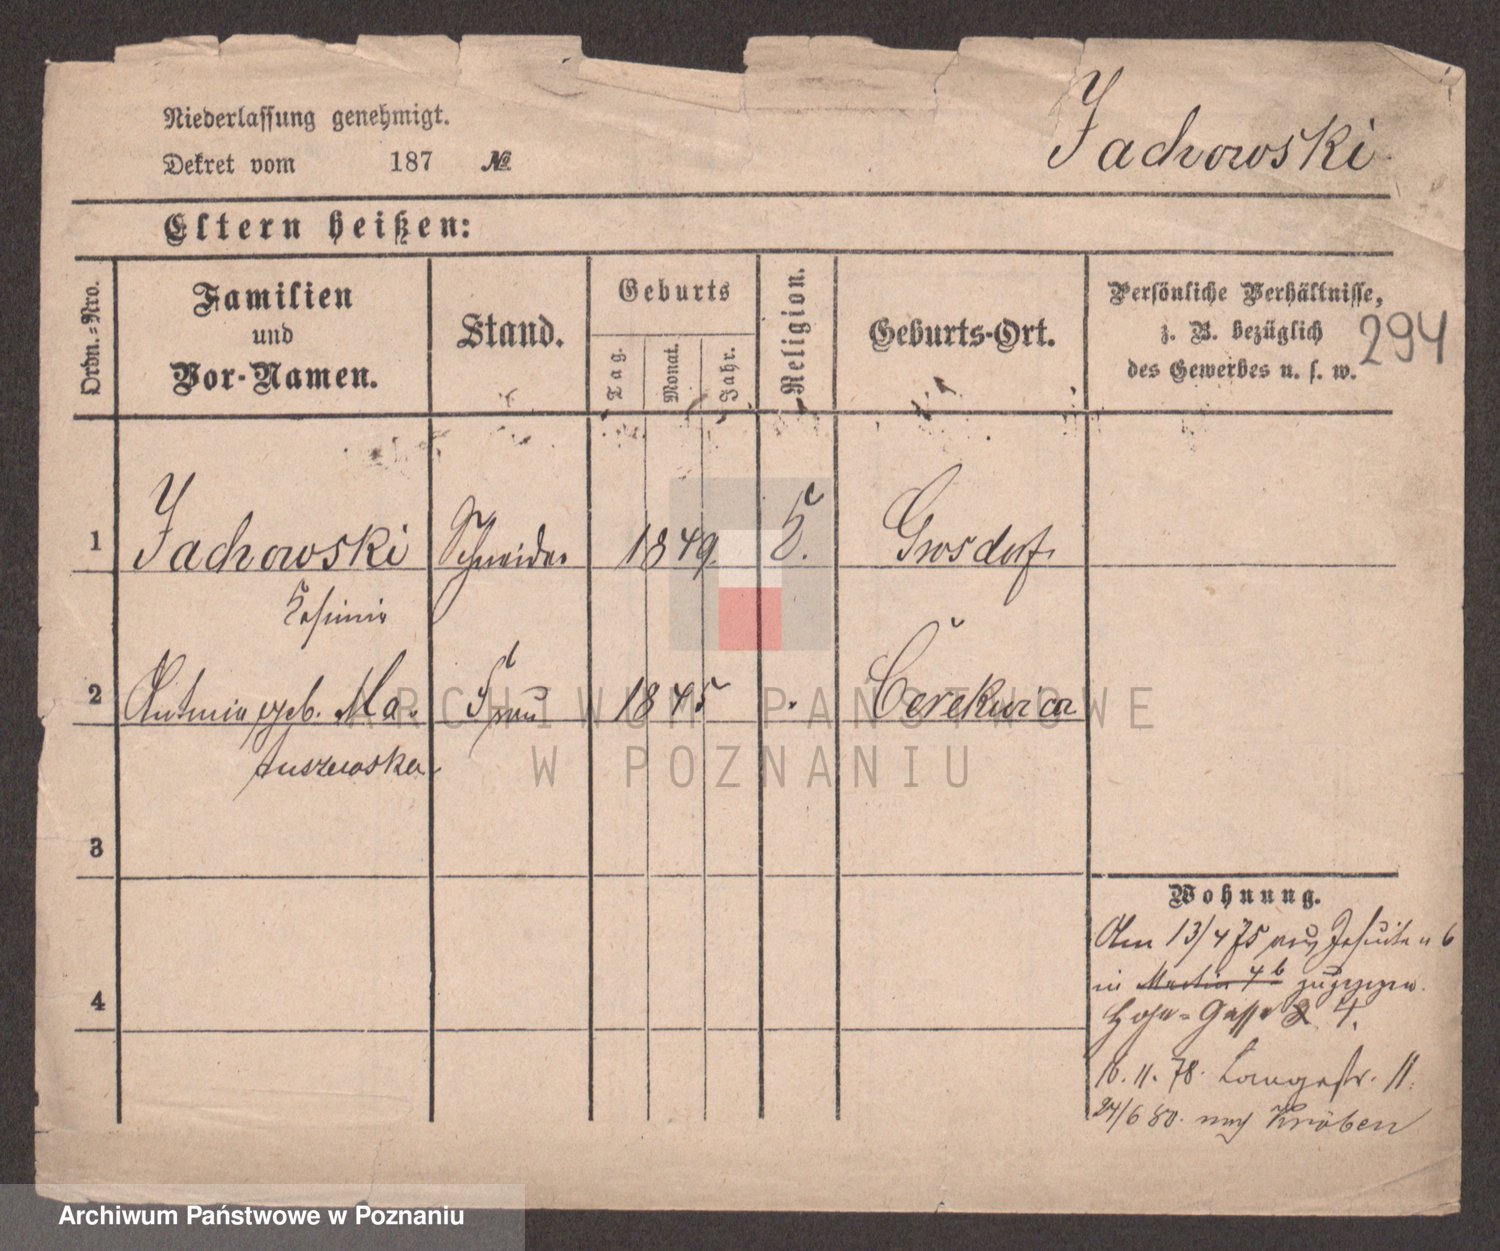 Niederlassung genehmigt.
Jachowski
Dekret vom 187 №
Eltern heißen:
Ordn.=Nro.
Familien
und
Vor-Namen.
Stand.
Geburts
Tag.
Monat.
Jahr.
Religion.
Geburts-Ort.
Persönliche Verhältnisse,
z. B. bezüglich
des Gewerbes u. s. w.
294
1 Jachowski Schneider 1849. K. Grosdorf
Kasimir
2 Antonia geb. Ma- Frau 1845 Cerekwica
tuszewska
3
Wohnung.
Am 13/4 75 aus Jesuiten 6
in Martin 4b zugezogen.
4
Hohe-Gasse 4.
11. 78. Langestr. 11.
24/6 80. nach Kröben
ARCHIWUM PAŃSTWOWE
W POZNANIU
Archiwum Państwowe w Poznaniu